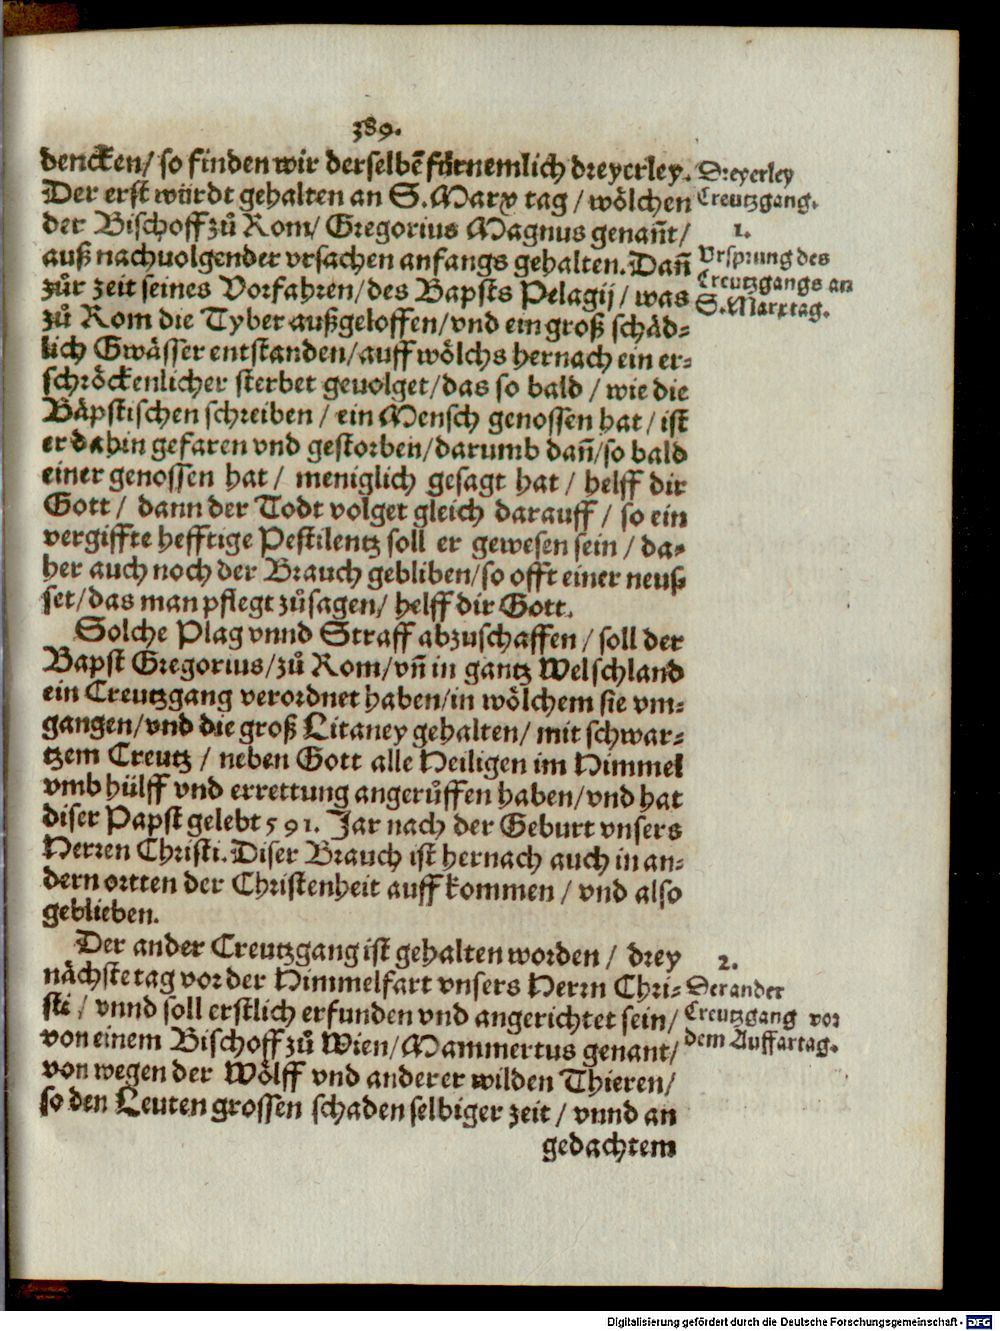 389.
dencken/ so finden wir derselbẽ fürnemlich dreyerley.
Der erst würdt gehalten an S. Marx tag / wölchen
der Bischoff zů Rom/ Gregorius Magnus genañt/
auß nachuolgender vrsachen anfangs gehalten. Dañ
zůr zeit seines Vorfahren/ des Bapsts Pelagij/ was
zů Rom die Tyber außgeloffen/ vnd ein groß schäd⸗
lich Gwässer entstanden/ auff wölchs hernach ein er⸗
schröckenlicher sterbet geuolget/ das so bald / wie die
Bäpstischen schreiben / ein Mensch genossen hat / ist
er dahin gefaren vnd gestorben/ darumb dañ/ so bald
einer genossen hat / meniglich gesagt hat / helff dir
Gott / dann der Todt volget gleich darauff / so ein
vergiffte hefftige Pestilentz soll er gewesen sein / da⸗
her auch noch der Brauch gebliben/ so offt einer neus⸗
set/ das man pflegt zůsagen/ helff dir Gott.
Solche Plag vnnd Straff abzuschaffen / soll der
Bapst Gregorius/ zů Rom/ vñ in gantz Welschland
ein Creutzgang verordnet haben/ in wölchem sie vm⸗
gangen/ vnd die groß Litaney gehalten/ mit schwar⸗
tzem Creutz / neben Gott alle Heiligen im Himmel
vmb hülff vnd errettung angerůffen haben/ vnd hat
diser Papst gelebt 591. Jar nach der Geburt vnsers
Herren Christi. Diser Brauch ist hernach auch in an⸗
dern ortten der Christenheit auff kommen / vnd also
geblieben.
Der ander Creutzgang ist gehalten worden / drey
nächste tag vor der Himmelfart vnsers Herrn Chri⸗
sti / vnnd soll erstlich erfunden vnd angerichtet sein/
von einem Bischoff zů Wien/ Mammertus genant/
von wegen der Wölff vnd anderer wilden Thieren/
so den Leuten grossen schaden selbiger zeit / vnnd an
gedachtem
Dreyerley
Creutzgang.
1.
Vrsprung des
Creutzgangs an
S. Marxtag.
2.
Der ander
Creutzgang vor
dem Auffartag.
Digitalisierung gefördert durch die Deutsche Forschungsgemeinschaft - DFG